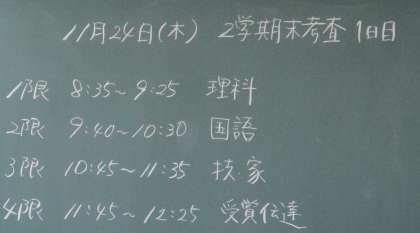 11月24日(木) 2学期末考査 1日目
1限 8:35~9:25 理科
2限 9:40~10:30 国語
3限 10:45~11:35 技.家
4限 11:45~12:25 受賞伝達